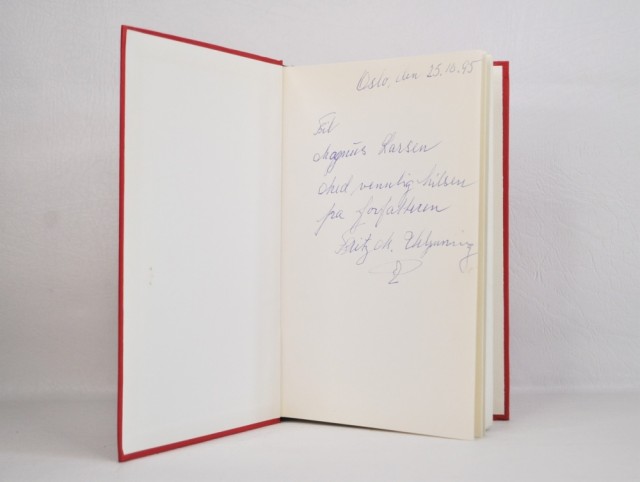 Oslo, den 25.10.95
Til
Magnus Larsen
Med vennlig hilsen
på forfatteren
Fritz M.